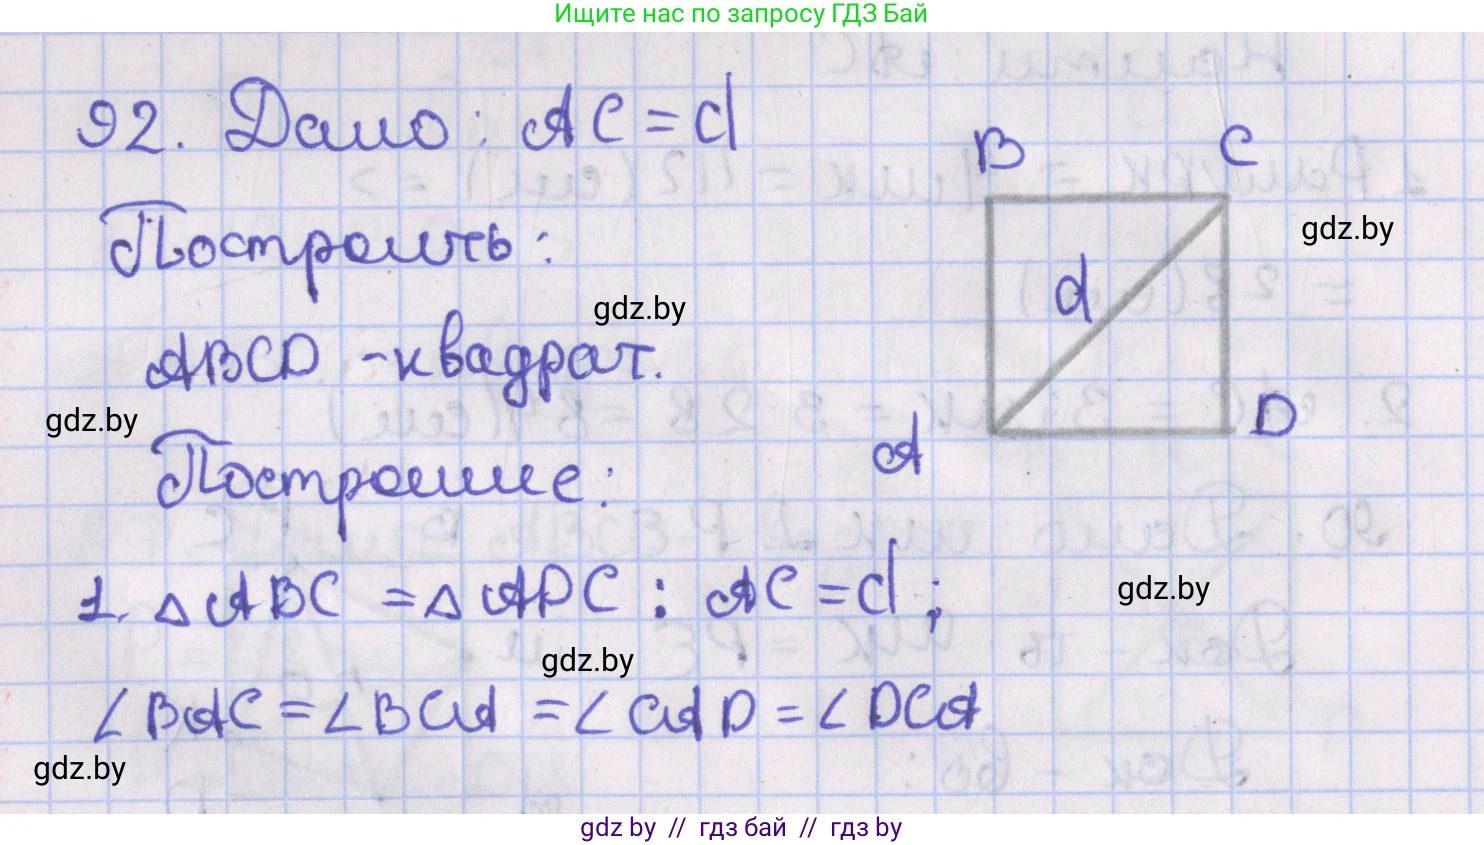 Ищите нас по запросу ГДЗ Бай
92. Дано: AC = d
Построить:
ABCD - квадрат.
Построение:
1. △ ABC = △ ADC : AC = d ;
∠ BAC = ∠ BCA = ∠ CAD = ∠ DCA
B C
d
A D
gdz.by
gdz.by
gdz.by
gdz.by
gdz.by
gdz.by
gdz by // гдз бай // гдз by